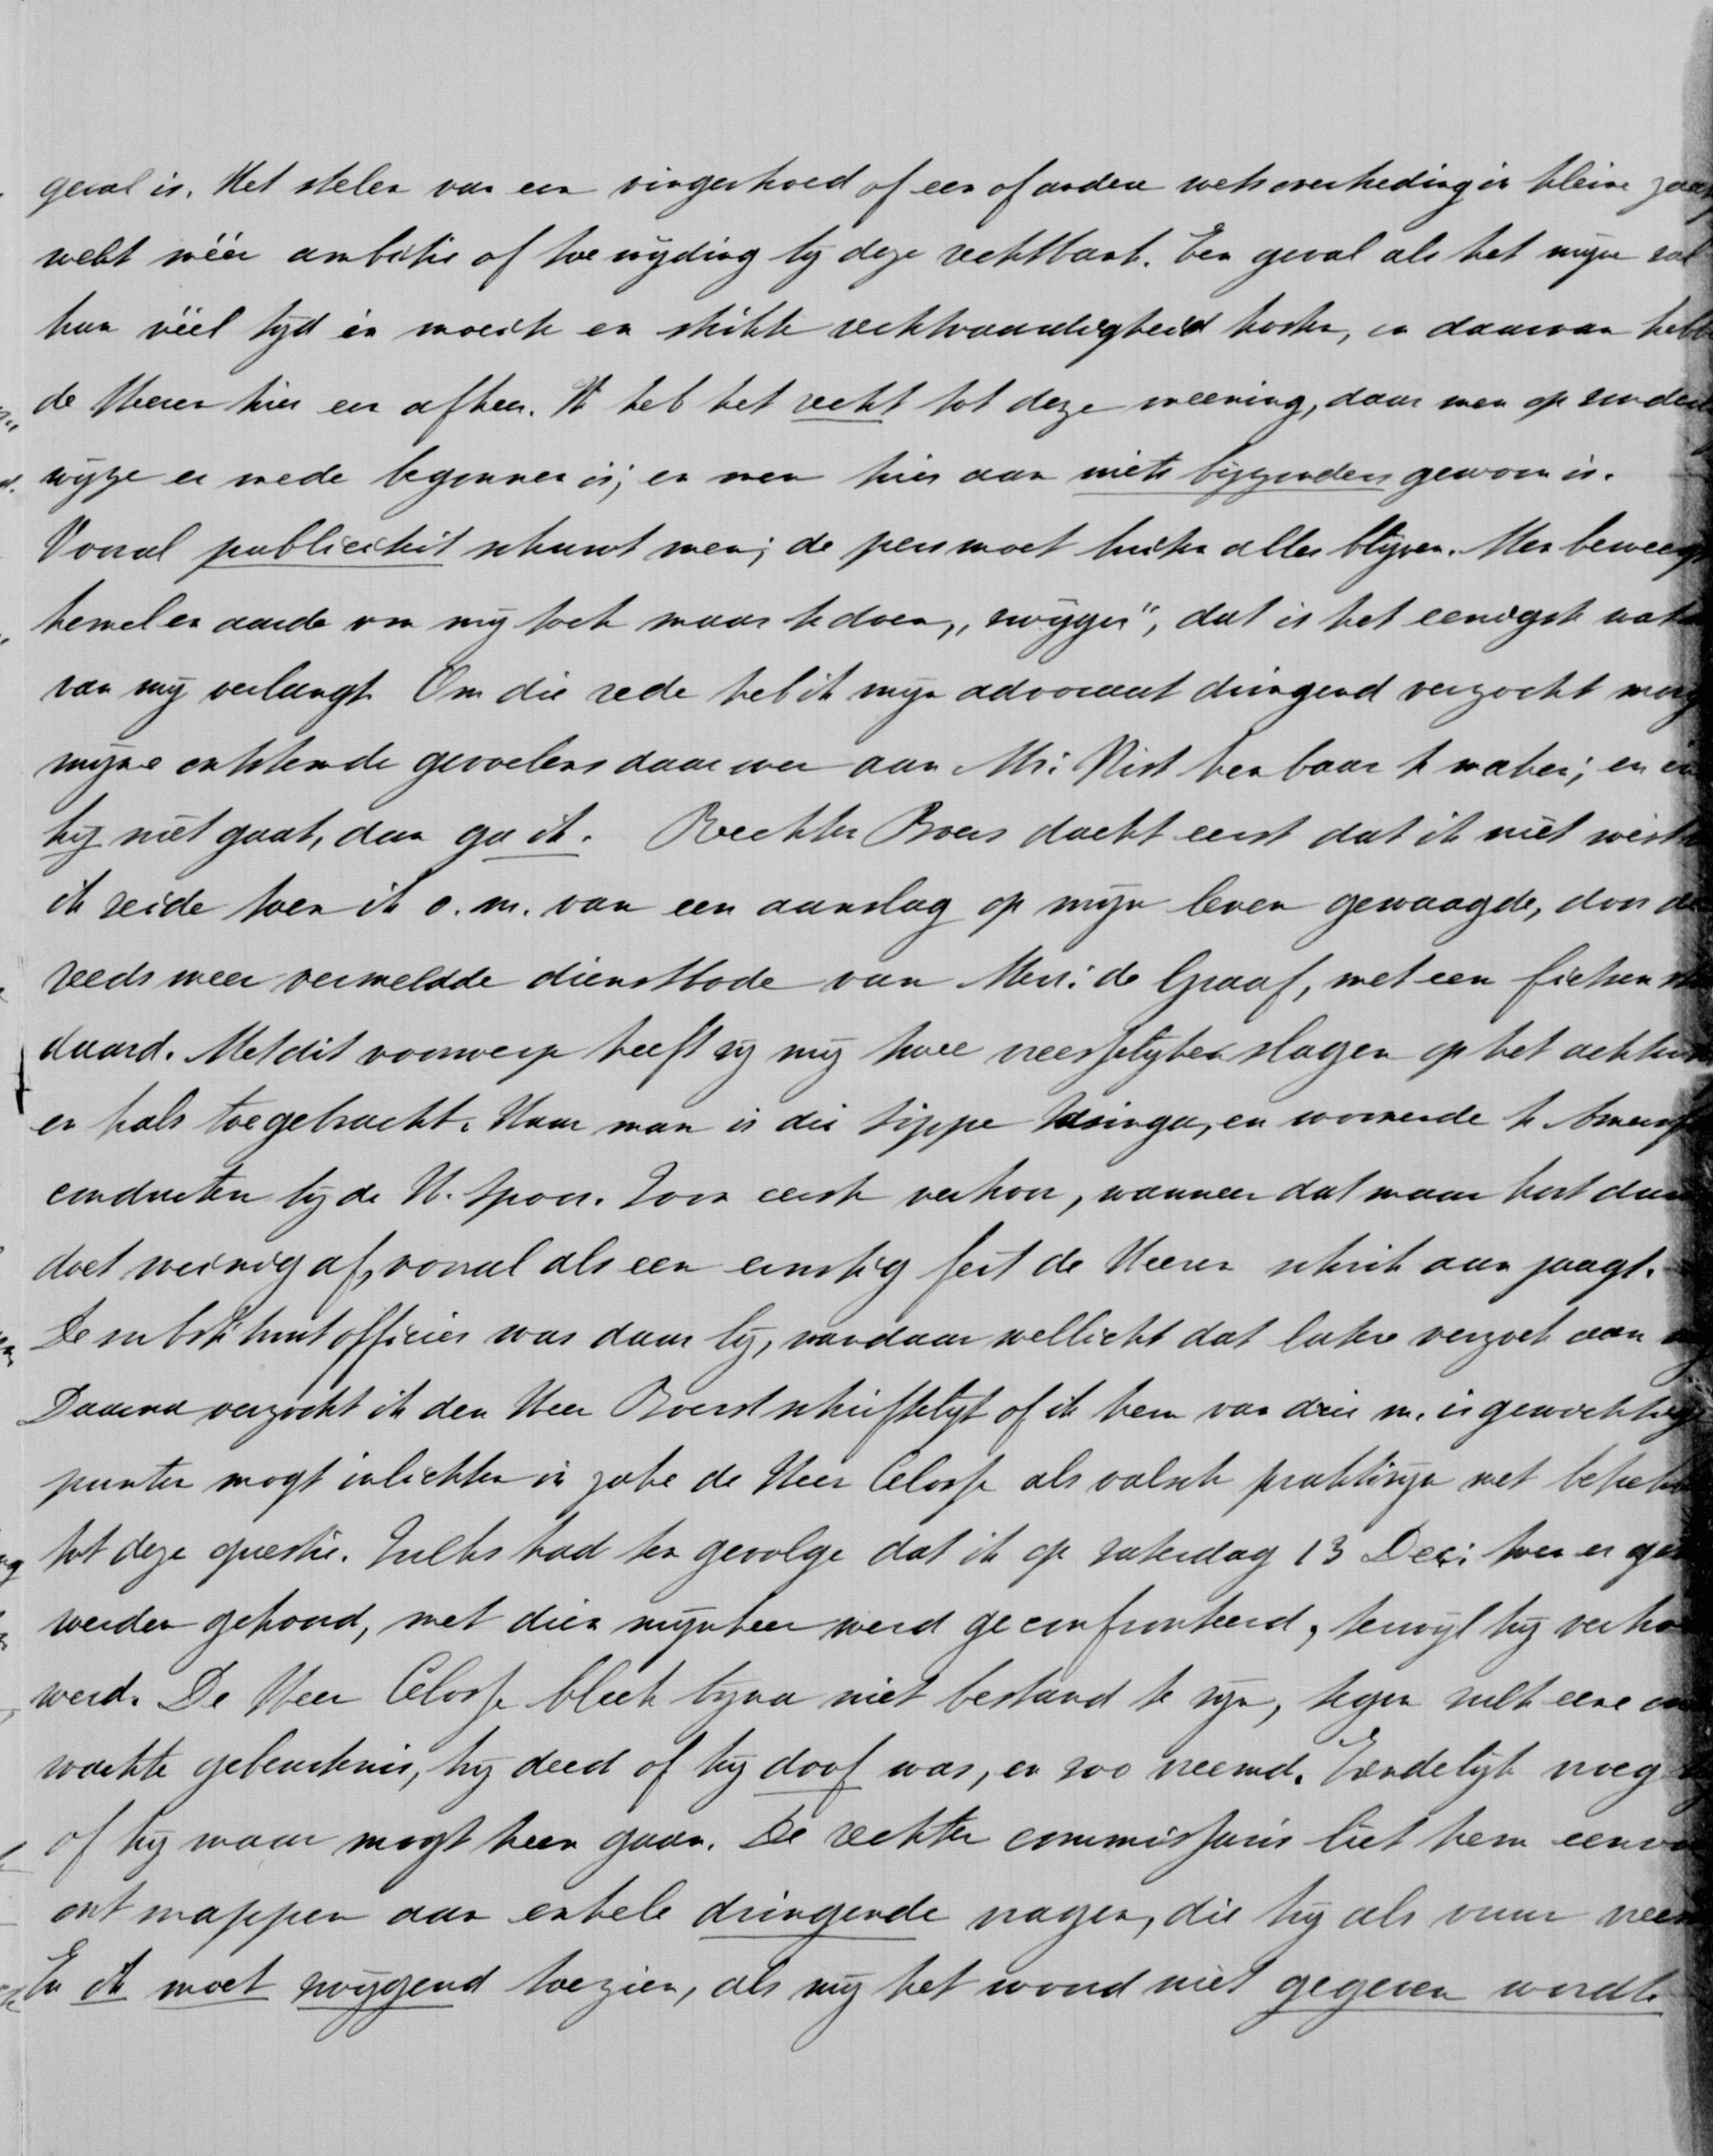 geval is. Het stelen van een vingerhoed of een of andere wetsoverheding in kleine
wekt méér ambitie of toewyding by deze rechtbank. Een geval als het myne zal
hun véél tyd en moeite en strikte rechtvaardigheid kosten, en daarvan
de Heeren hier een afkeer. Ik heb het recht tot deze meening, daar men op
wyze er mede begonnen is; en men hier aan niets byzonders gewoon is.
Vooral publiciteit schuwt men; de pers moet buiten alles blyven. Men beweegt
hemel en aarde om my toch maar te doen „zwygen", dat is het eenigste wat
van my verlangt. Om die rede heb ik myn advocaat dringend verzocht
myne ontstemde gevoelens daar over aan Mr: Nist kenbaar te maken; en
hy niet gaat, dan ga ik. Rechter Boers dacht eerst dat ik niet wist
ik zeide toen ik o.m. van een aanslag op myn leven gewaagde, door de
reeds meer vermeldde dienstbode van Mevr: de Graaf, met een fietsen
daard. Met dit voorwerp heeft zy my twee vreesselyken slagen op het
en hals toegebracht. Haar man is die Sippe Idsinga, en woonende te
conducteur by de H. Spoor. Zoon eerste verhoor, wanneer dat maar kort duurt
doet weinig af, vooral als een ernstig feit de Heeren schrik aan jaagt.
De substituut officier was daar by, vandaar wellicht dat latere verzoek aan
Daarna verzocht ik den Heer Boers schriftelyk of ik hem van drie m. i. gewichtige
punten mogt inlichten in zake de Heer Closse als valsche praktizyn met
tot deze questie. Zulks had ten gevolge dat ik op zaterdag 13 Dec: toen er
werden gehoord, met dien mynheer werd geconfronteerd, terwyl hy
werd. De Heer Closse bleek byna niet bestand te zyn, tegen zulk eene
wachtte gebeurtenis, hy deed of hy doof was, en zoo vreemd. Eindelyk vroeg
of hy maar mogt heen gaan. De rechter commissaris liet hem
ontsnappen aan enkele dringende vragen, die hy als vuur
En ik moet zwygend toezien, als my het woord niet gegeven wordt.